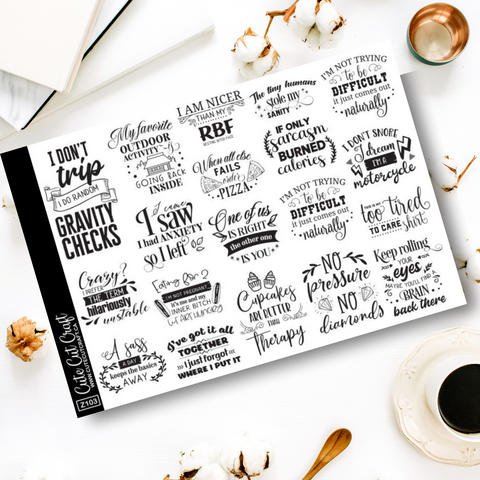 I DON'T
trip
I DO RANDOM
GRAVITY
CHECKS
My favorite
OUTDOOR
ACTIVITY IS
GOING BACK
INSIDE
I AM NICER
THAN MY
RBF
The tiny humans
stole my
SANITY
I'M NOT TRYING
to be
DIFFICULT
it just comes out
naturally
I came
I saw
I had ANXIETY
so I left
When all else
FAILS
PIZZA
IF ONLY
sarcasm
BURNED
calories
I DON'T SNORE
I dream
I'M A
motorcycle
Crazy?
I PREFER
THE TERM
hilariously
unstable
One of us
IS RIGHT
the other one
IS YOU
I'M NOT TRYING
to be
DIFFICULT
it just comes out
naturally
THIS IS MY
too tired
TO CARE shirt
Eating for 2
I'M NOT PREGNANT
it's me and my
INNER BITCH
Cupcakes
ARE BETTER
THAN
Therapy
NO
pressure
NO
diamonds
Keep rolling
YOUR
eyes
MAYBE YOU'LL FIND A
BRAIN
back there
A sass
A DAY
keeps the basics
AWAY
I'Ve got it all
TOGETHER
I just forgot
WHERE I PUT IT
Cute Cut Craft
WWW.CUTECUTCRAFT.CA
Z103